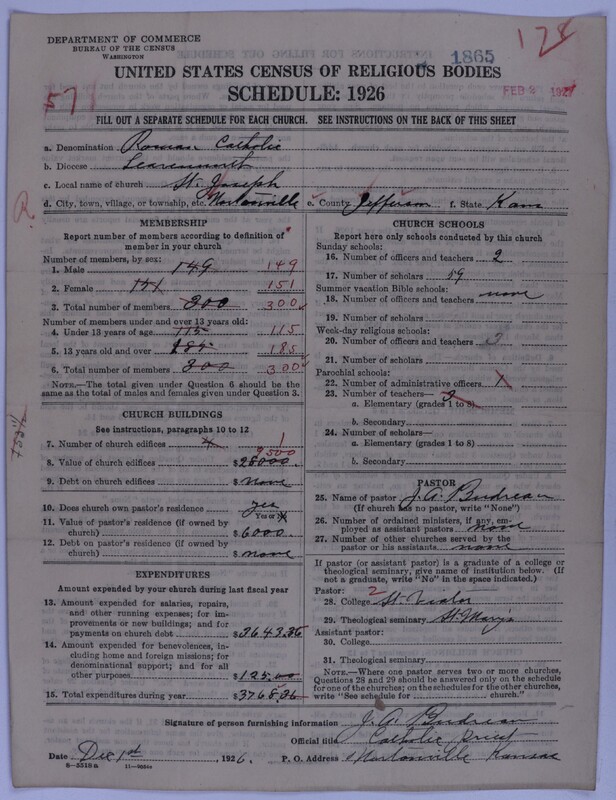 DEPARTMENT OF COMMERCE
BUREAU OF THE CENSUS
WASHINGTON
1865
FEB 2 1927
57
UNITED STATES CENSUS OF RELIGIOUS BODIES
SCHEDULE: 1926
FILL OUT A SEPARATE SCHEDULE FOR EACH CHURCH. SEE INSTRUCTIONS ON THE BACK OF THIS SHEET
a. Denomination Roman Catholic
b. Diocese Leavenworth
c. Local name of church St. Joseph
d. City, town, village, or township, etc. Nortonville e. County Jefferson f. State Kans
R
MEMBERSHIP
Report number of members according to definition of member in your church
Number of members, by sex:
1. Male 149 149
2. Female 151 151
3. Total number of members 300 300
Number of members under and over 13 years old:
4. Under 13 years of age 115 115
5. 13 years old and over 185 185
6. Total number of members 300 300
NOTE.—The total given under Question 6 should be the same as the total of males and females given under Question 3.
CHURCH BUILDINGS
See instructions, paragraphs 10 to 12
7. Number of church edifices 4 1
8. Value of church edifices $25000
9. Debt on church edifices $ none
10. Does church own pastor's residence yes
Yes or No
11. Value of pastor's residence (if owned by church) $6000
12. Debt on pastor's residence (if owned by church) $ none
EXPENDITURES
Amount expended by your church during last fiscal year
13. Amount expended for salaries, repairs, and other running expenses; for improvements or new buildings; and for payments on church debt $3643.26
14. Amount expended for benevolences, including home and foreign missions; for denominational support; and for all other purposes $125.00
15. Total expenditures during year $3768.26
CHURCH SCHOOLS
Report here only schools conducted by this church
Sunday schools:
16. Number of officers and teachers 2
17. Number of scholars 59
Summer vacation Bible schools:
18. Number of officers and teachers none
19. Number of scholars
Week-day religious schools:
20. Number of officers and teachers 3
21. Number of scholars
Parochial schools:
22. Number of administrative officers
23. Number of teachers—
a. Elementary (grades 1 to 8) 3
b. Secondary
24. Number of scholars—
a. Elementary (grades 1 to 8)
b. Secondary
PASTOR
25. Name of pastor J. A. Budreau
(If church has no pastor, write "None")
26. Number of ordained ministers, if any, employed as assistant pastors none
27. Number of other churches served by the pastor or his assistants none
If pastor (or assistant pastor) is a graduate of a college or theological seminary, give name of institution below. (If not a graduate, write "No" in the space indicated.)
Pastor: 2
28. College St. Viator
29. Theological seminary St. Mary's
Assistant pastor:
30. College
31. Theological seminary
NOTE.—Where one pastor serves two or more churches, Questions 28 and 29 should be answered only on the schedule for one of the churches; on the schedules for the other churches, write "See schedule for church."
Signature of person furnishing information J. A. Budreau
Official title Catholic Priest
Date Dec 1st, 1926. P. O. Address Nortonville Kansas
8—5518a